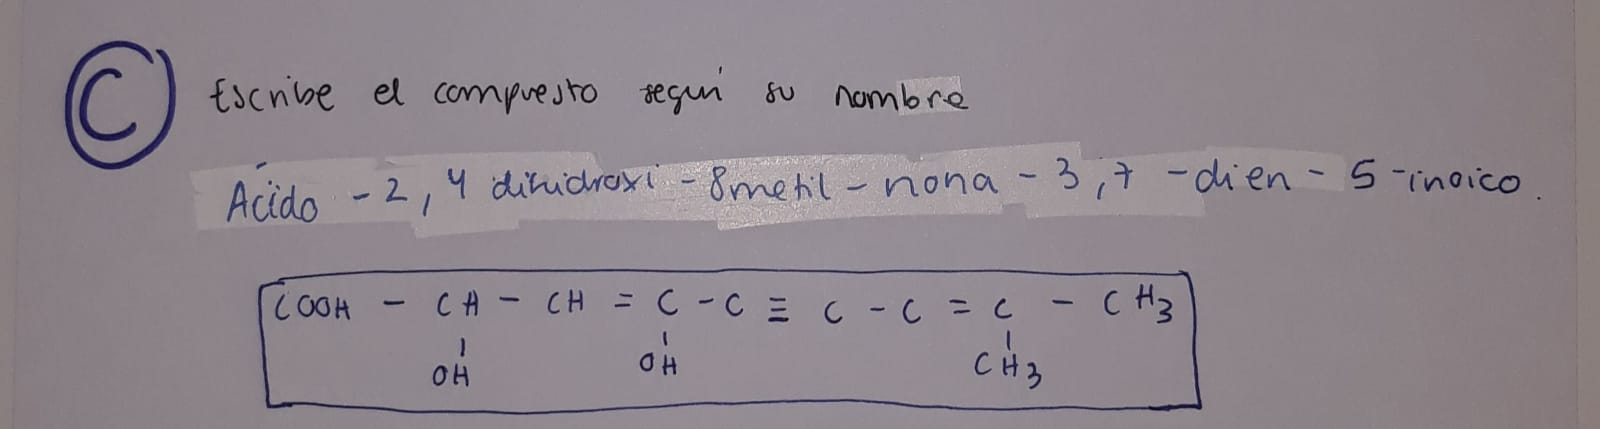 C Escribe el compuesto según su nombre
Ácido - 2, 4 dihidroxi - 8metil - nona - 3,7 - dien - 5 - inoico.
COOH - CH - CH = C - C ≡ C - C = C - CH3
OH OH CH3